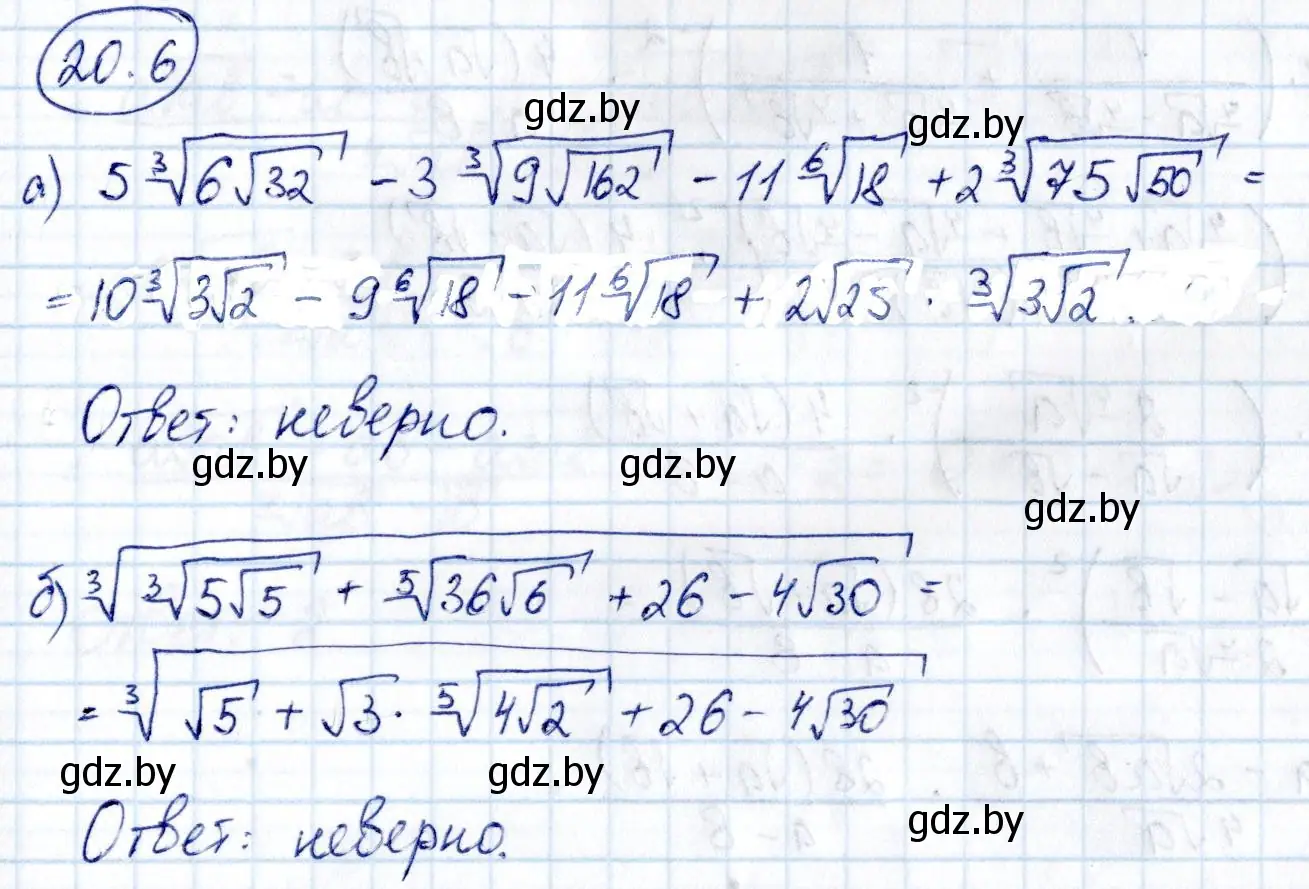 20.6
gdz.by
gdz.by
а) 5∛(6√32) - 3∛(9√162) - 11⁶√18 + 2∛(75√50) =
= 10∛(3√2) - 9⁶√18 - 11⁶√18 + 2√25 · ∛(3√2)
Ответ: неверно.
gdz.by
gdz.by
gdz.by
б) ∛(∛(5√5) + ⁵√(36√6) + 26 - 4√30) =
= ∛(√5 + √3 · ⁵√(4√2) + 26 - 4√30)
gdz.by
gdz.by
gdz.by
Ответ: неверно.